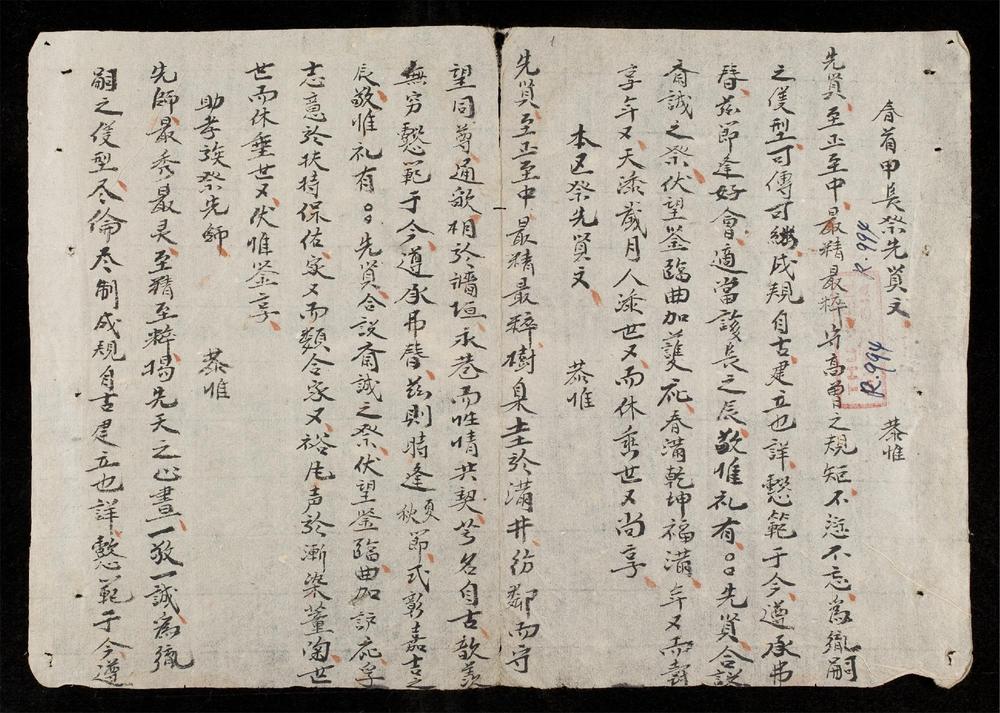 春首甲長祭先賢文 恭惟
先賢至正至中最精最粹守高曾之規矩不愆不忘爲嗣
之儀型可傳可継成規自古建立也詳懿範于今遵承弗
替茲節逢好會適當該長之辰敬惟礼有〻先賢合設
斋誠之祭伏望鉴臨曲加護庇春滿乾坤福滿年又而
享年又天添歲月人添世又而休垂世又尚享
本区祭先賢文 恭惟
先賢至正至中最精最粹樹臬圭於溝井彷鄰而守
望同尊通歌相於墻垣永巷而性情共契芳名自古歆羨
無穷懿範于今遵承弗替茲則時逢夏秋節式彰嘉吉之
辰敬惟礼有〻先賢合設斋誠之祭伏望鉴臨曲加庇孚
志意於扶持保佑家又而類令家又裕声於漸染薰南世
世而休垂世又伏惟鉴享
助孝族祭先師 恭惟
先師最秀最灵至精至粹揭先天之心畫一敬一誠爲
嗣之儀型尽倫尽制成規自古建立也詳懿範于今遵
R.994
R.994